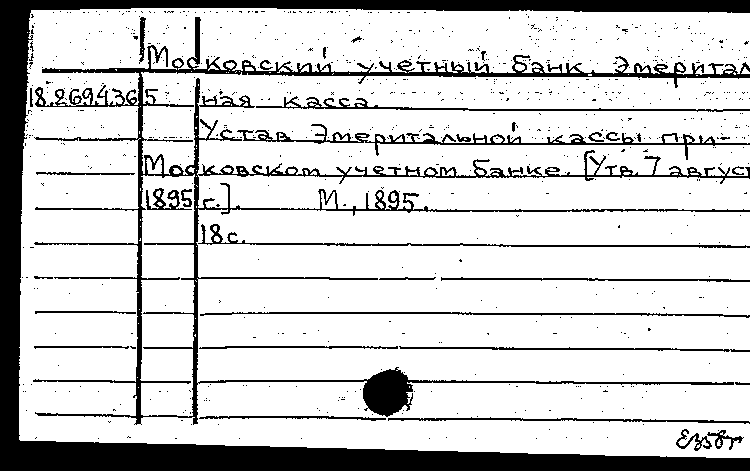 Московский учетный банк. Эмеритал
18.269.4.365 ная касса.
Устав Эмеритальной кассы при-
Московском учетном банке. [Утв. 7 август
1895 г.]. М., 1895.
18 с.